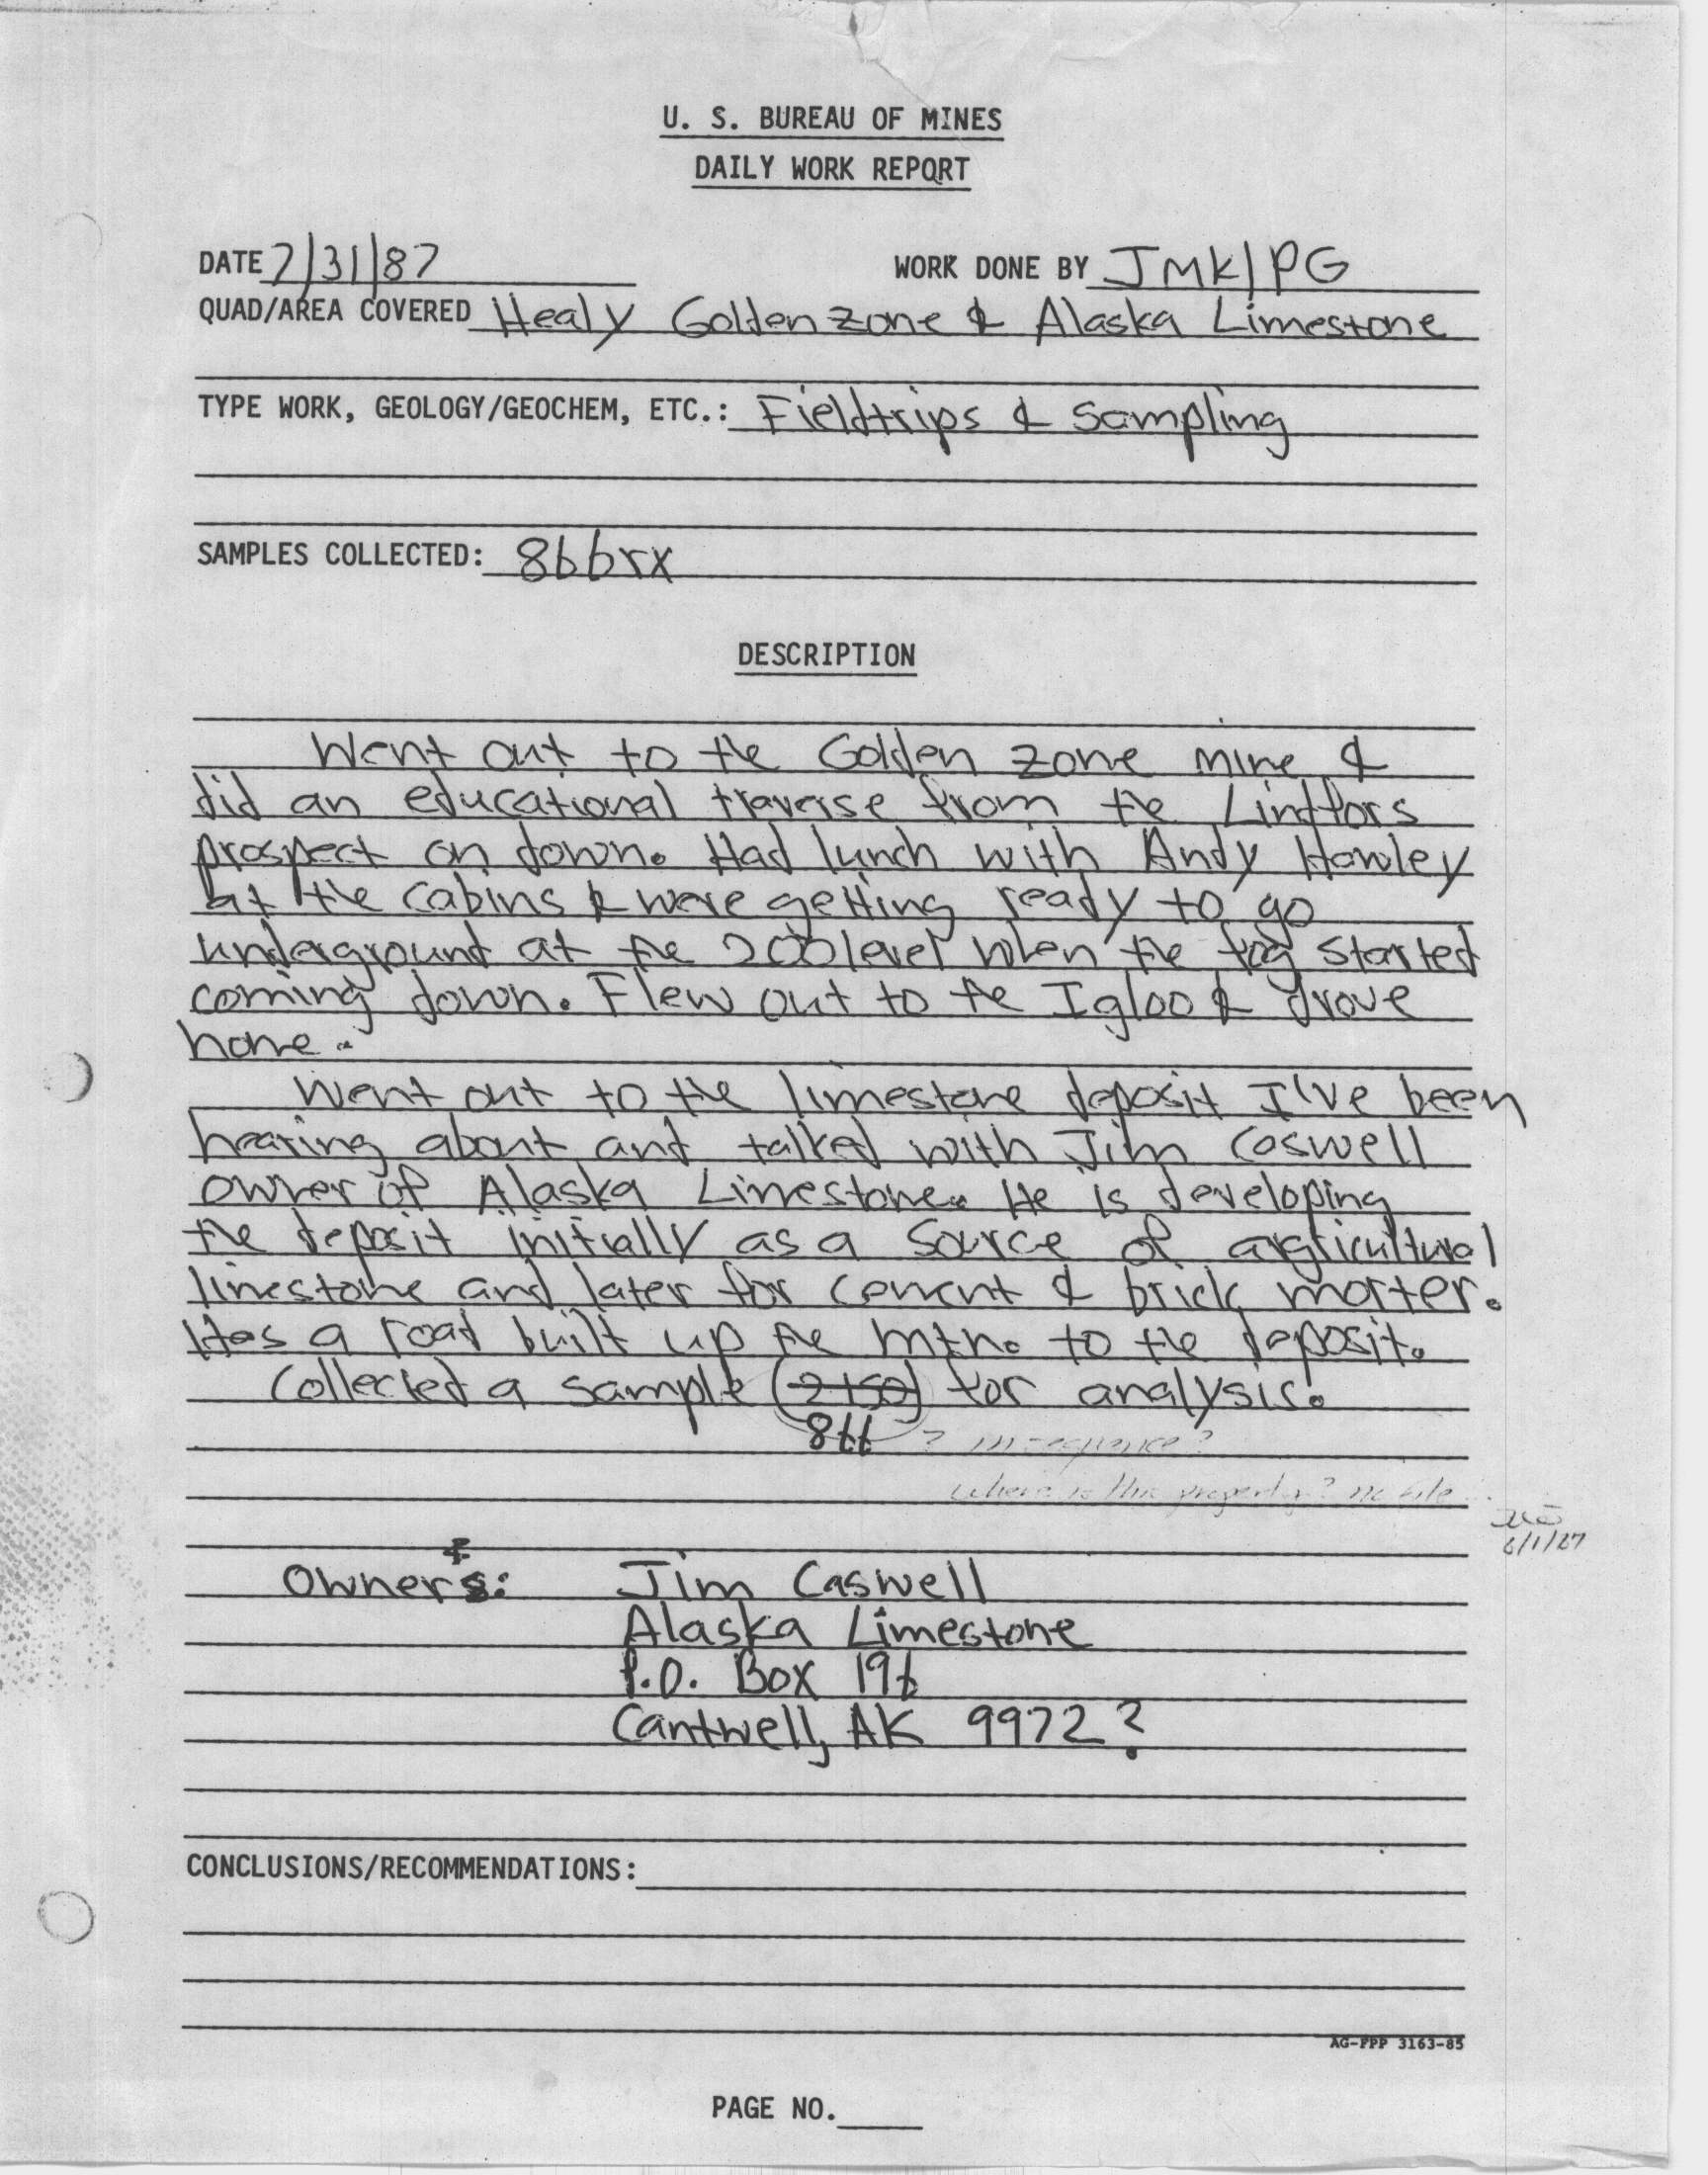 U. S. BUREAU OF MINES
DAILY WORK REPORT
DATE 7/31/87 WORK DONE BY JMK/PG
QUAD/AREA COVERED Healy Golden Zone & Alaska Limestone
TYPE WORK, GEOLOGY/GEOCHEM, ETC.: Fieldtrips & Sampling
SAMPLES COLLECTED: 866rx
DESCRIPTION
Went out to the Golden Zone Mine &
did an educational traverse from the Lindfors
prospect on down. Had lunch with Andy Hawley
at the cabins & were getting ready to go
underground at the 200 level when the fog started
coming down. Flew out to the Igloo & drove
home.
Went out to the limestone deposit I've been
hearing about and talked with Jim Caswell
owner of Alaska Limestone. He is developing
the deposit initially as a source of agricultural
limestone and later for cement & brick morter.
Has a road built up the mtn. to the deposit.
Collected a sample (2150) for analysis.
866 ? in sequence?
where is this property? no file
6/1/87
Owner: Jim Caswell
Alaska Limestone
P.O. Box 196
Cantwell, AK 9972?
CONCLUSIONS/RECOMMENDATIONS:
AG-FPP 3163-85
PAGE NO.